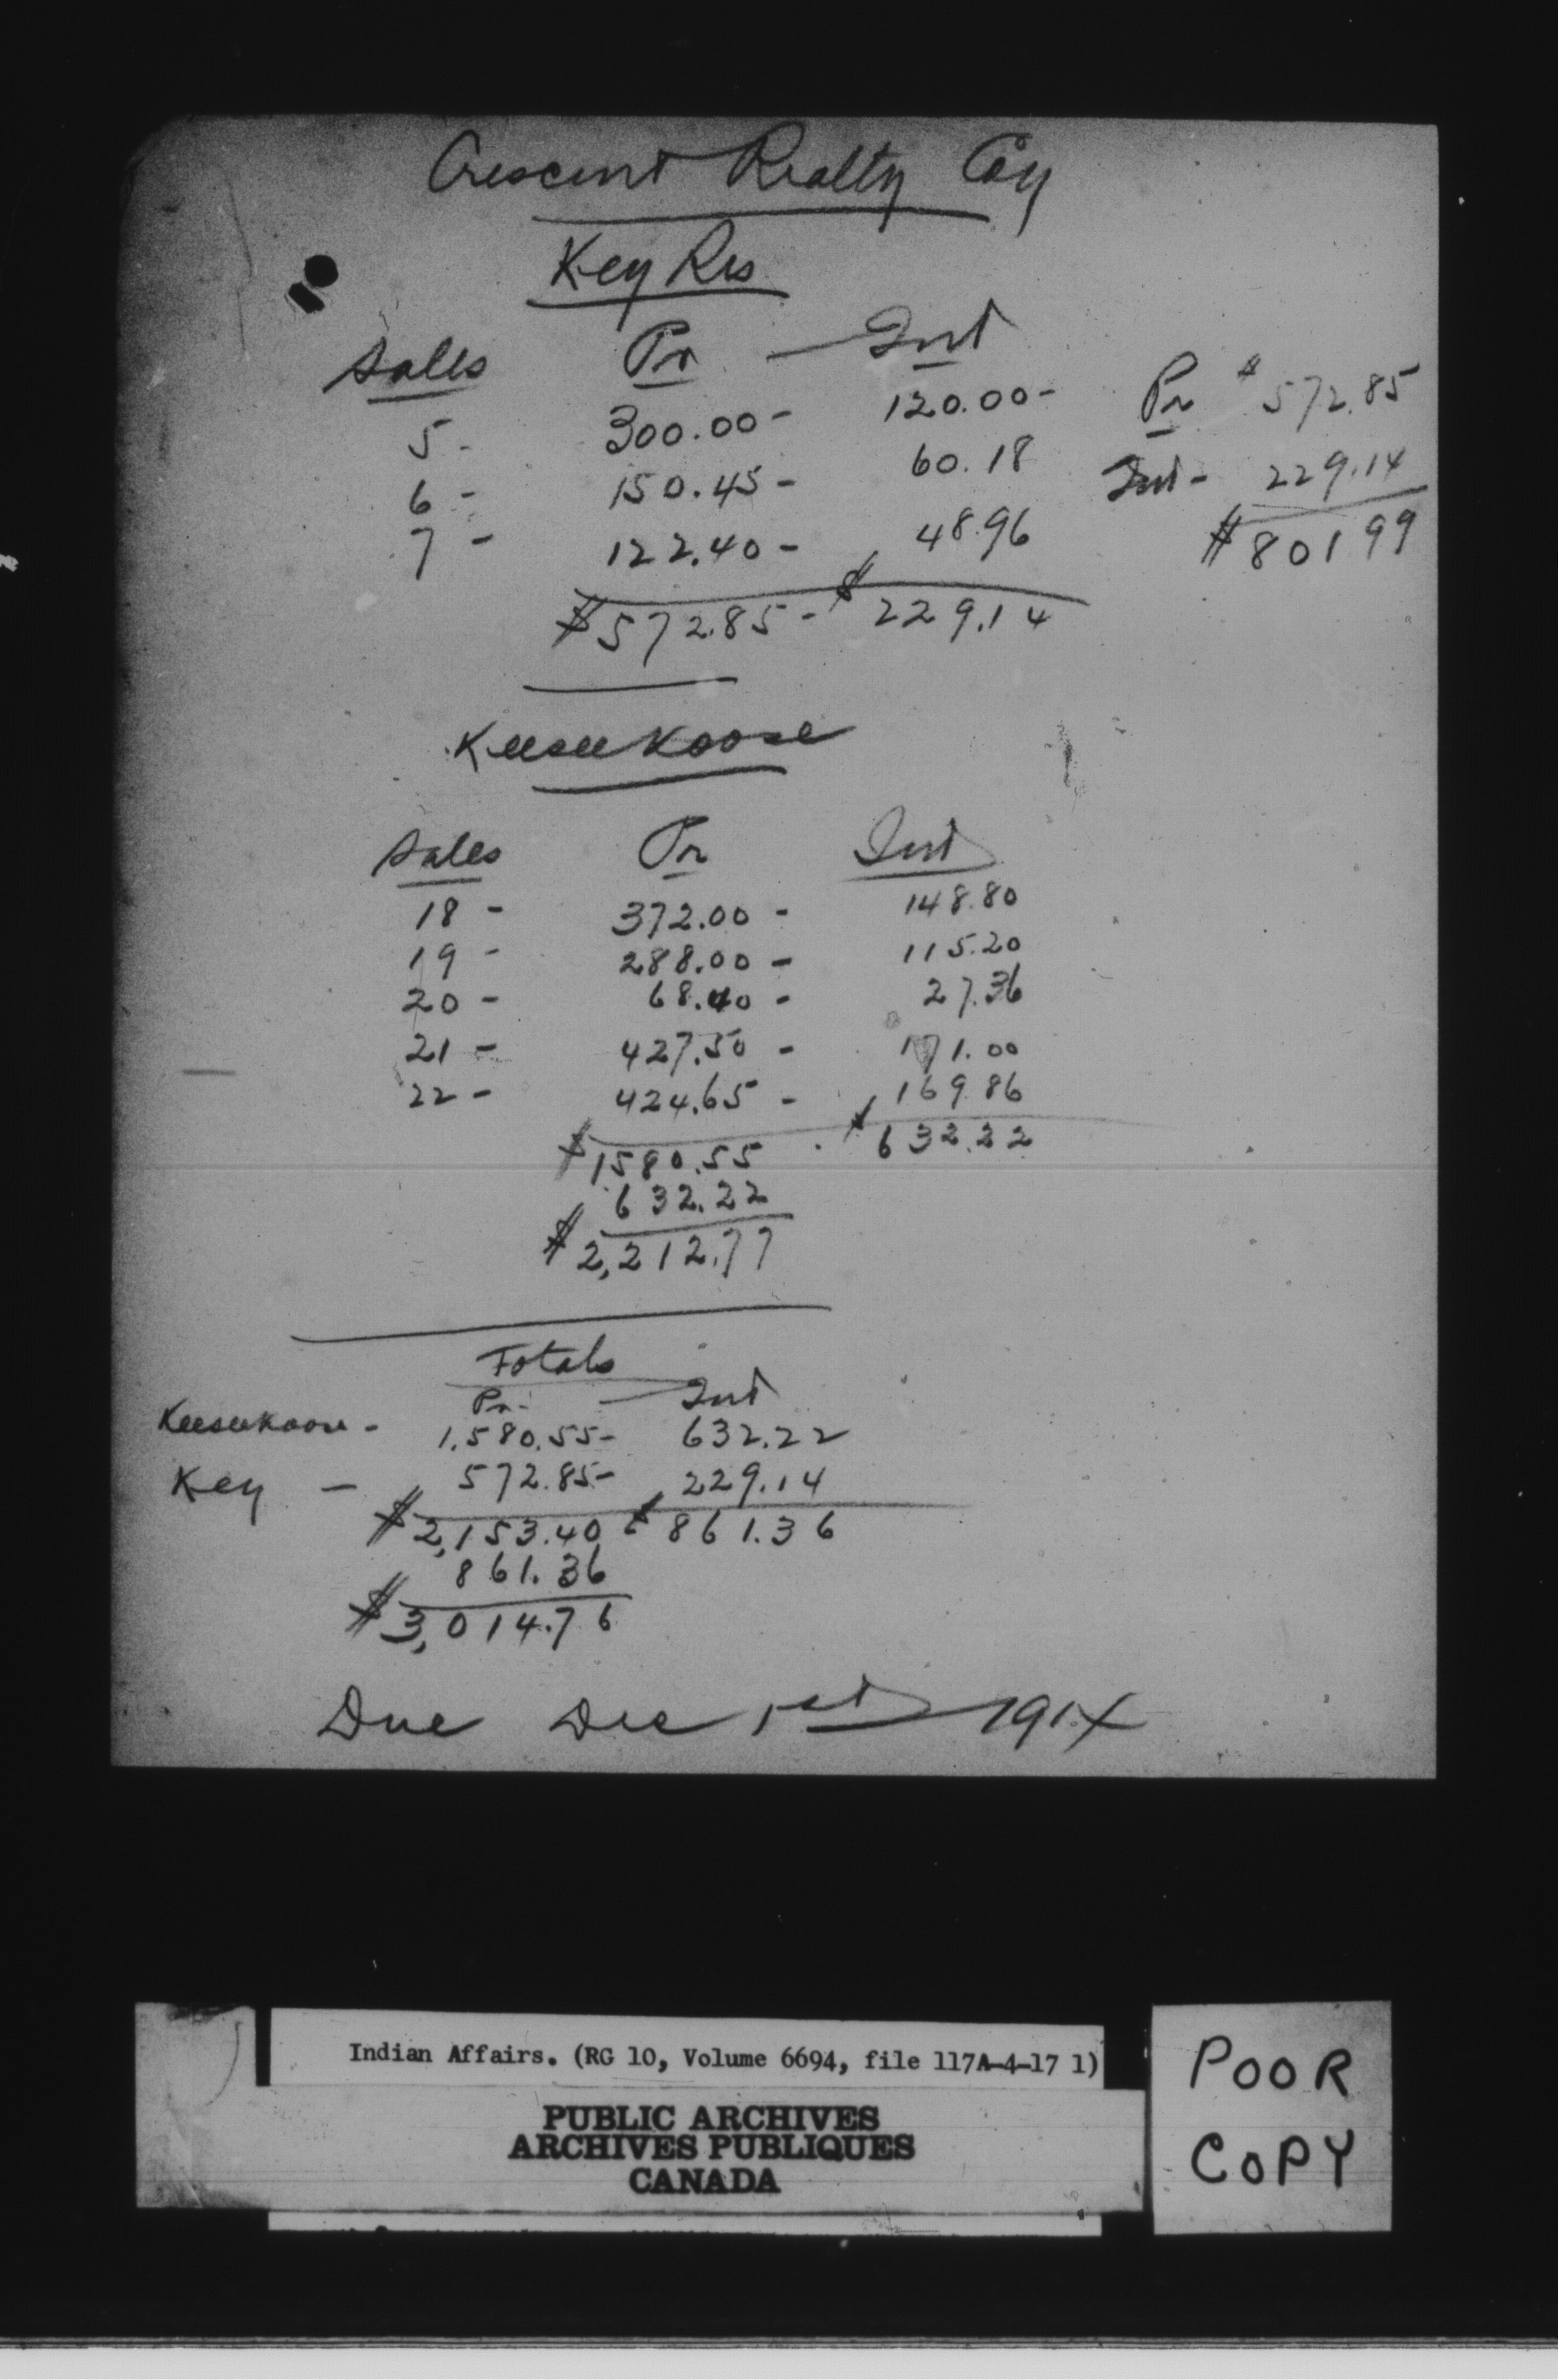 Crescent Realty Coy
Key Res
Sales Pr — Int
5 - 300.00 - 120.00 -
6 - 150.45 - 60.18
7 - 122.40 - 48.96
$572.85 - $229.14
Pr $572.85
Int - 229.14
$801 99
Keeseekoose
Sales Pr Int
18 - 372.00 - 148.80
19 - 288.00 - 115.20
20 - 68.40 - 27.36
21 - 427.50 - 171.00
22 - 424.65 - 169.86
$1580.55 . $632.22
632.22
$2,212.77
Totals
Pr - Int
Keeseekoose - 1,580.55 - 632.22
Key - 572.85 - 229.14
$2,153.40 $861.36
861.36
$3,014.76
Due Dec 1st 1914
Indian Affairs. (RG 10, Volume 6694, file 117A-4-17 1)
PUBLIC ARCHIVES
ARCHIVES PUBLIQUES
CANADA
POOR
COPY